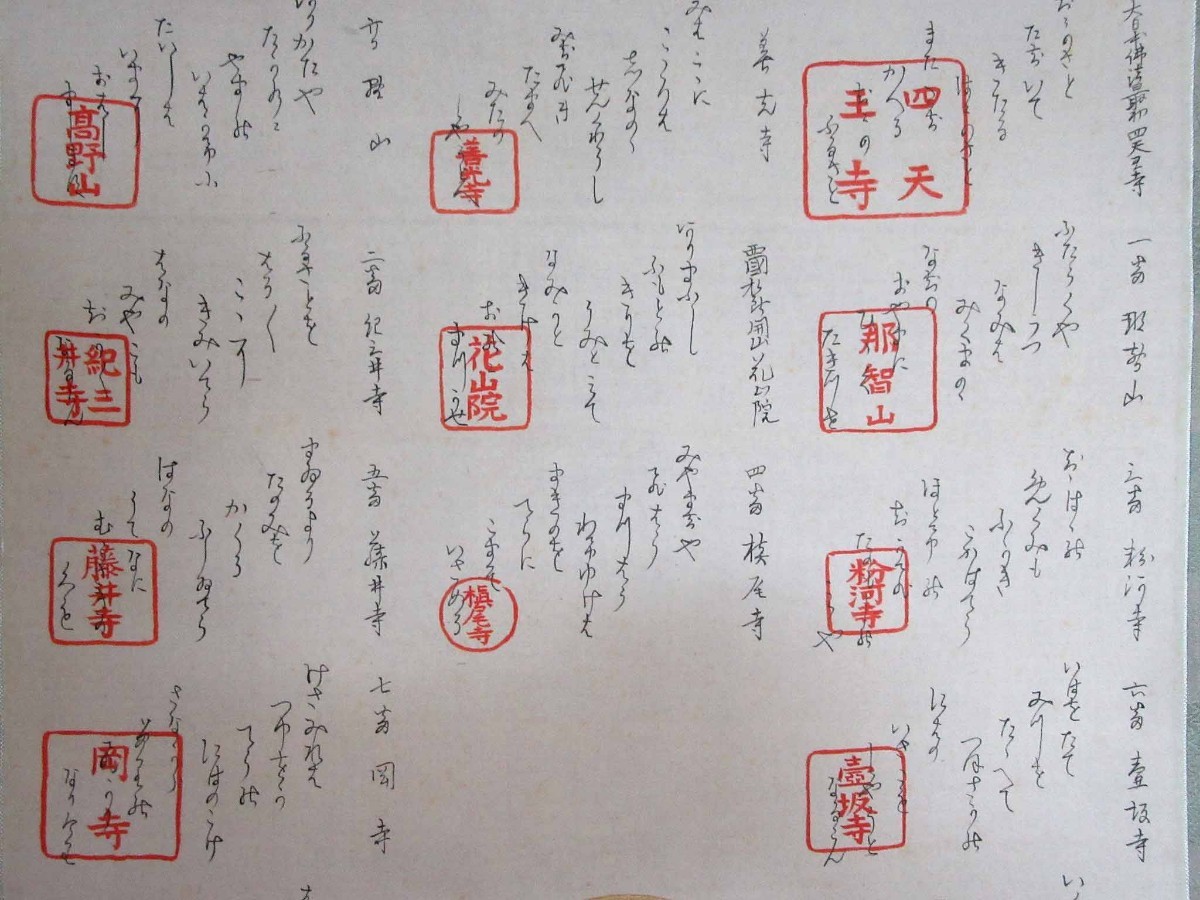 大日本佛法最初四天王寺
きたる
またかへる
ふるさと
四天王寺
善光寺
みはここに
こころは
しなのゝ
せんくわうし
みちひき
たまへ
みたの
善光寺
高野山
ありかたや
たかのゝ
やまの
いはかけに
たいしは
いまに
高野山
一番 那智山
ふたらくや
きしうつ
なみは
みくまのゝ
なちの
おやまに
たきつせ
那智山
花山院
ありまふし
ふもとの
きりは
うみとみて
なみかと
きけは
おのの
まつかせ
花山院
二番 紀三井寺
ふるさとを
はる〳〵
ここに
きみいてら
はなの
みやこも
ちかく
なるらん
紀三井寺
三番 粉河寺
ちちははの
めくみも
ふかき
こかはてら
ほとけの
ちかひ
たのもしの
粉河寺
四番 槙尾寺
みやまちや
ひはら
まつはら
わけゆけは
まきのを
てらに
こまそ
いさめる
槇尾寺
五番 藤井寺
まゐるより
たのみを
かくる
ふしゐてら
はなの
うてなに
むらさきの
くも
藤井寺
六番 壷坂寺
いはをたて
みつを
たたへて
つほさかの
にはの
いさこも
しやうと
なるらん
壺坂寺
七番 岡寺
けさみれは
つゆをか
てらの
にはのこけ
さなから
るりの
ひかり
なりけり
岡寺